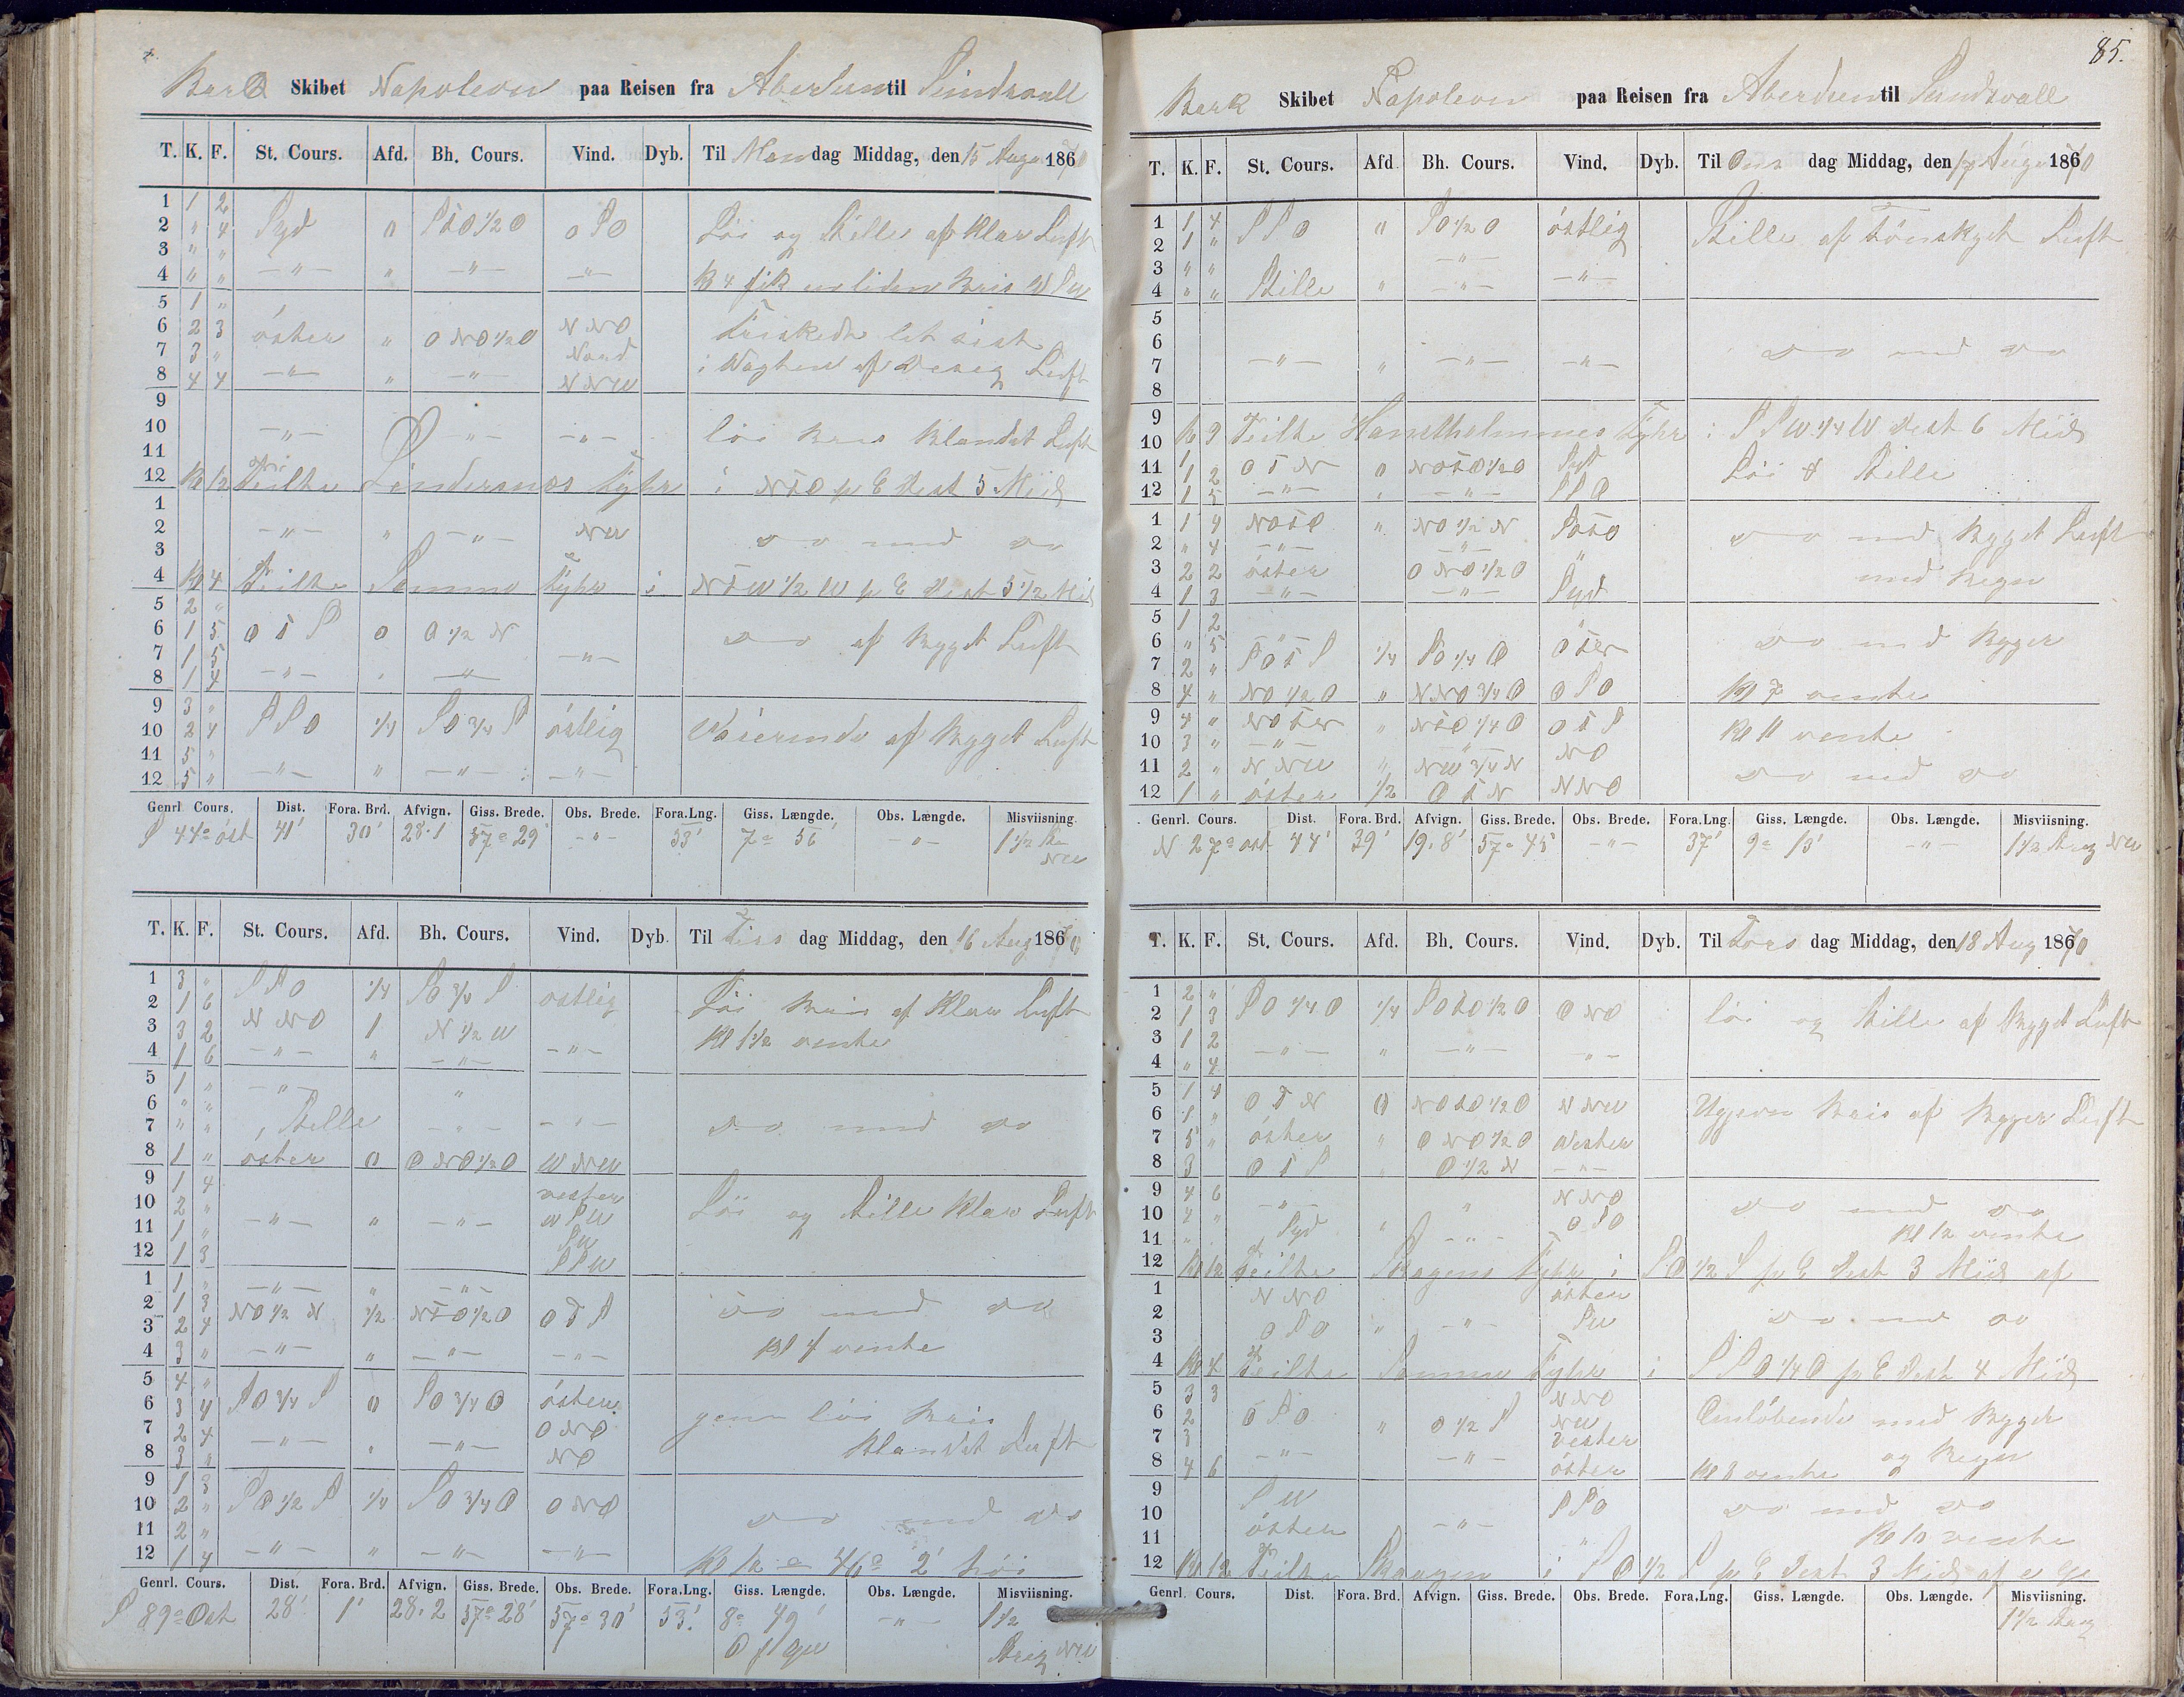 Bark Skibet Napoleon paa Reisen fra Aberdeen til Sundsvall
T. K. F. St. Cours. Afd. Bh. Cours. Vind. Dyb. Til Mandag Middag, den 15 Aug 1870
1 1 2
2 " 4 Syd 0 StO 1/2 O O SO Löi og Stille af Klar Luft
3 " "
4 " " —"— " —"— —"— Kl 4 fik en liden Bris
5 1 "
6 2 3 öster " ONO 1/2 O NNO Friskede lit sist
7 3 " Nord i Vagten af Luft
8 4 4 —"— " —"— NNW
9
10 —"— —"— —"— löi Bris Blandet Luft
11
12 Kl 12 Peilte Lindesnæs Fyhr i NtO p C Dest 5 Miil
1
2 —"— " —"— NW do med do
3
4 Kl 4 Peilte Samme Fyhr i NtW 1/2 W p C Dest 5 1/2 Miil
5 2 "
6 1 5 O t S 0 O 1/2 N do af Skyget Luft
7 1 5 —"—
8 1 4 —"— —"—
9 3 "
10 2 4 SSO 1/4 SO 3/4 S östlig af Skyget Luft
11 5 "
12 5 " —"— " —"— —"—
Genrl. Cours. Dist. Fora. Brd. Afvign. Giss. Brede. Obs. Brede. Fora.Lng. Giss. Længde. Obs. Længde. Misviisning.
S 44° öst 41' 30' 28.1 57° 29' —"— 53' 7° 56' —"— 1 1/2 NW
T. K. F. St. Cours. Afd. Bh. Cours. Vind. Dyb. Til Tirsdag Middag, den 16 Aug 1870
1 3 "
2 1 6 SSO 1/4 SO 3/4 S östlig Löi Bris af Klar Luft
3 3 2 NNO 1 N 1/2 W Kl 1 1/2 vente
4 1 6 —"— " —"— —"—
5 1 " —"— "
6 " "
7 " " Stille —"— —"— do med do
8 1 " öster 0 ONO 1/2 O WNW
9 1 4 vester
10 2 " —"— " —"— WSW Löi og Stille Klar Luft
11 1 " SW
12 1 3 SSW
1 1 " —"— " —"—
2 1 3 NO 1/2 N 1/2 NtO 1/2 O O t S do med do
3 2 4 Kl 4 vente
4 3 " —"— " —"— —"—
5 4 "
6 3 4 SO 3/4 S 0 SO 3/4 O öster löi Bris
7 2 4 —"— —"— ONO Blandet Luft
8 3 " NO
9 1 3
10 2 " SO 1/2 S 1/4 SO 3/4 O ONO do med do
11 2 "
12 1 4 —"— " —"— —"— Kl 12 = 46° 2' höi
Genrl. Cours. Dist. Fora. Brd. Afvign. Giss. Brede. Obs. Brede. Fora.Lng. Giss. Længde. Obs. Længde. Misviisning.
S 89° Ost 28' 1' 28.2 57° 28' 57° 30' 53' 8° 49' —"— 1 1/2
O f Gr Streg NW
85.
Bark Skibet Napoleon paa Reisen fra Aberdeen til Sundsvall
T. K. F. St. Cours. Afd. Bh. Cours. Vind. Dyb. Til Onsdag Middag, den 17 Aug 1870
1 1 4 SSO 0 SO 1/2 O östlig Stille af Tönskyet Luft
2 1 " —"—
3 " " —"—
4 " " Stille " —"—
5
6 do med do
7 —"— " —"— —"—
8
9
10 Kl 9 Peilte Hanstholmens Fyhr i SSW 1/4 W Dest 6 Miil
11 1 2 O t N 0 NOtO 1/2 O Syd Löi & Stille
12 1 5 —"— " —"— SSO
1 1 4 NOtO " NO 1/2 N SOtO do med Skyget Luft
2 " 4 —"— " "
3 2 2 öster ONO 1/2 O med Regn
4 1 3 —"— —"— Syd
5 1 2
6 " 5 SOtS 1/4 SO 1/4 O öster do med Skyger
7 2 "
8 4 " NO 1/2 O " NNO 3/4 O OSO Kl 7 vente
9 4 " " NtO 1/4 O O t S
10 3 " —"— " NO Kl 11 vente
11 2 " NNW " NW 3/4 N do med do
12 1 " öster 1/2 O t N NNO
Genrl. Cours. Dist. Fora. Brd. Afvign. Giss. Brede. Obs. Brede. Fora.Lng. Giss. Længde. Obs. Længde. Misviisning.
N 27° ost 44' 39' 19.8' 57° 45' —"— 37' 9° 13' —"— 1 1/2 Streg NW
T. K. F. St. Cours. Afd. Bh. Cours. Vind. Dyb. Til Torsdag Middag, den 18 Aug 1870
1 2 "
2 1 3 SO 1/4 O 1/4 SOtO 1/2 O ONO löi og Stille af Skyget Luft
3 1 2
4 " 4 —"— " —"— —"—
5 1 4
6 1 " O t N 0 NOtO 1/2 O NNW Ugjevn Bris af Skyger Luft
7 5 " öster " ONO 1/2 O Vester
8 3 O t S O 1/2 N —"—
9 4 6 —"— " NNO
10 4 " Syd " OSO do med do
11 " —"— Kl 12 vente
12 Kl 12 Peilte Skagens Fyhr i SO 1/2 S p C Dest 3 Miil af
1 NNO öster
2 SW do med do
3 OSO " —"—
4 Kl 4 Peilte Samme Fyhr i SSO 1/4 O p C Dest 4 Miil
5 3 3 NNO
6 2 OSO " O 1/2 S NW Omlöbende med Skyger
7 3 Vester
8 4 6 —"— —"— öster Kl 8 vente og Regn
9
10 SW SSO do med do
11 öster —"— " Kl 10 vente
12 Kl 12 Peilte Skagen i SO 1/2 S p C Dest 3 Miil af
Genrl. Cours. Dist. Fora. Brd. Afvign. Giss. Brede. Obs. Brede. Fora.Lng. Giss. Længde. Obs. Længde. Misviisning.
1 1/2 Streg